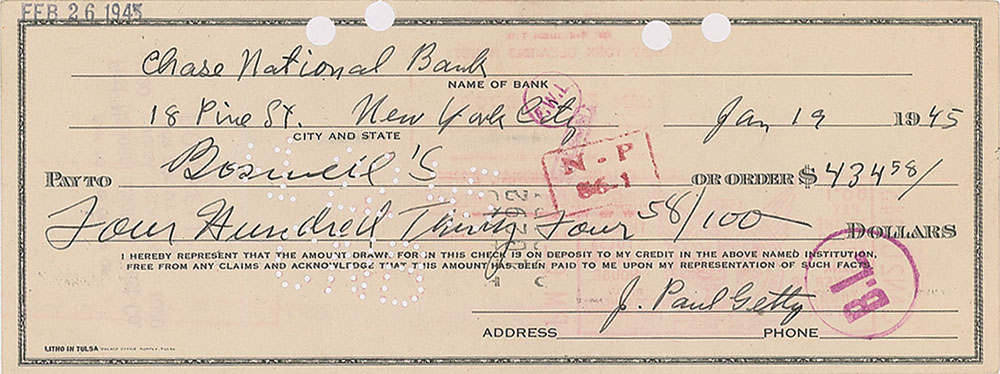 FEB 26 1945
Chase National Bank
NAME OF BANK
18 Pine St. New York City Jan 19 1945
CITY AND STATE
N-P
86.1
PAY TO Boswell's OR ORDER $ 434 58/
Four Hundred Thirty Four 58/100 DOLLARS
I HEREBY REPRESENT THAT THE AMOUNT DRAWN FOR IN THIS CHECK IS ON DEPOSIT TO MY CREDIT IN THE ABOVE NAMED INSTITUTION,
FREE FROM ANY CLAIMS AND ACKNOWLEDGE THAT THIS AMOUNT HAS BEEN PAID TO ME UPON MY REPRESENTATION OF SUCH FACTS.
B.17
J. Paul Getty
ADDRESS PHONE
LITHO IN TULSA